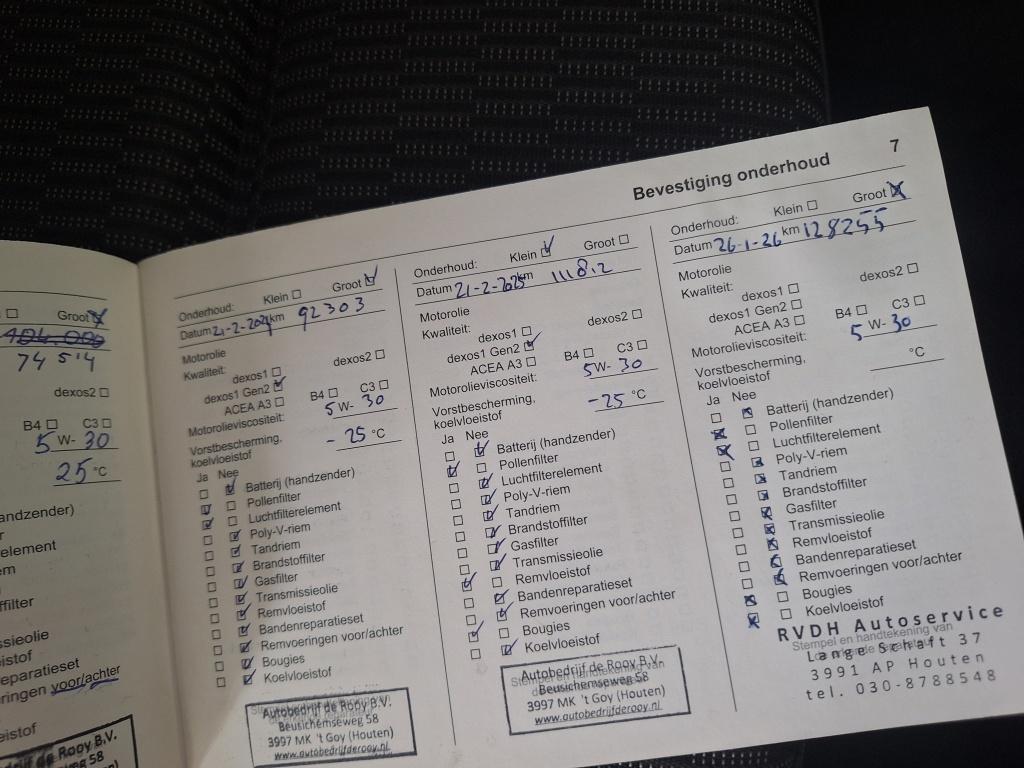 Bevestiging onderhoud
7
Groot
74 514
dexos2
B4 C3
5 W- 30
25 °C
andzender)
element
ssieolie
paratieset
ringen voor/achter
vloeistof
de Rooy B.V.
Onderhoud: Klein Groot
Datum 21-2-2024 km 92303
Motorolie
Kwaliteit: dexos2
dexos1
dexos1 Gen2
ACEA A3 B4 C3
Motorolieviscositeit: 5 W- 30
Vorstbescherming,
koelvloeistof - 25 °C
Ja Nee
Batterij (handzender)
Pollenfilter
Luchtfilterelement
Poly-V-riem
Tandriem
Brandstoffilter
Gasfilter
Transmissieolie
Remvloeistof
Bandenreparatieset
Remvoeringen voor/achter
Bougies
Koelvloeistof
Autobedrijf de Rooy B.V.
Beusichemseweg 58
3997 MK 't Goy (Houten)
www.autobedrijfderooy.nl
Onderhoud: Klein Groot
Datum 21-2-2025 km 111812
Motorolie
Kwaliteit: dexos2
dexos1
dexos1 Gen2
ACEA A3 B4 C3
Motorolieviscositeit: 5 W- 30
Vorstbescherming,
koelvloeistof -25 °C
Ja Nee
Batterij (handzender)
Pollenfilter
Luchtfilterelement
Poly-V-riem
Tandriem
Brandstoffilter
Gasfilter
Transmissieolie
Remvloeistof
Bandenreparatieset
Remvoeringen voor/achter
Bougies
Koelvloeistof
Stempel en handtekening van
Autobedrijf de Rooy B.V.
Beusichemseweg 58
3997 MK 't Goy (Houten)
www.autobedrijfderooy.nl
Onderhoud: Klein Groot
Datum 26-1-26 km 128255
Motorolie
Kwaliteit: dexos2
dexos1
dexos1 Gen2
ACEA A3 B4 C3
Motorolieviscositeit: 5 W- 30
Vorstbescherming,
koelvloeistof °C
Ja Nee
Batterij (handzender)
Pollenfilter
Luchtfilterelement
Poly-V-riem
Tandriem
Brandstoffilter
Gasfilter
Transmissieolie
Remvloeistof
Bandenreparatieset
Remvoeringen voor/achter
Bougies
Koelvloeistof
RVDH Autoservice
Stempel en handtekening van
Lange Schaft 37
3991 AP Houten
tel. 030-8788548